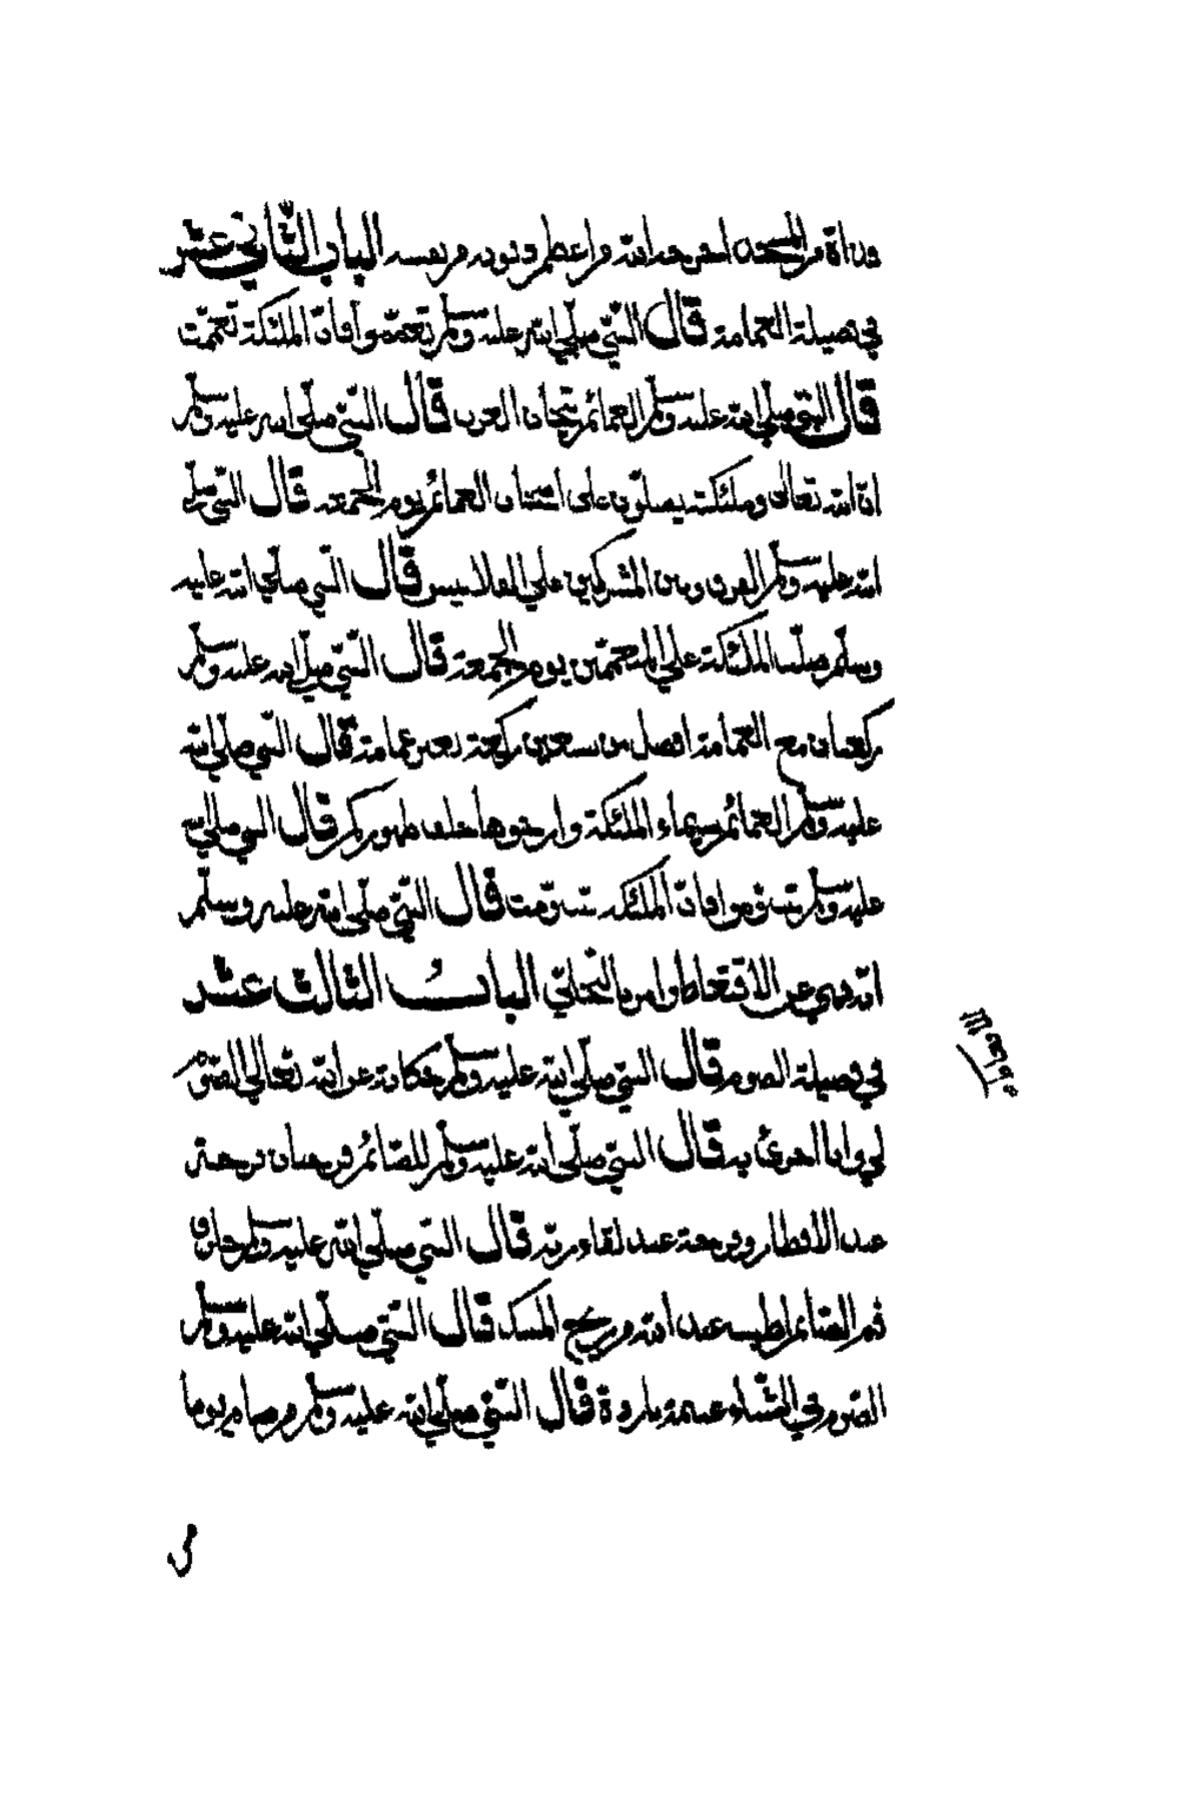 ورآه من المسجد اخرجه الله من اعظم ذنوبه من نفسه الباب الثاني عشر
في فضيلة العمامة قال النبي صلى الله عليه وسلم تعمموا فان الملئكة تعممت
قال النبي صلى الله عليه وسلم العمائم تيجان العرب قال النبي صلى الله عليه وسلم
ان الله تعالى وملئكته يصلون على اصحاب العمائم يوم الجمعة قال النبي صلى
الله عليه وسلم الفرق وبين المشركين على القلانيس قال النبي صلى الله عليه
وسلم صلت الملئكة على المتعممين يوم الجمعة قال النبي صلى الله عليه وسلم
ركعتان مع العمامة افضل من سبعين ركعة بغير عمامة قال النبي صلى الله
عليه وسلم العمائم سيماء الملئكة وارخوها خلف ظهوركم قال النبي صلى الله
عليه وسلم تسوموا فان الملئكة تسومت قال النبي صلى الله عليه وسلم
انه نهى عن الاقتعاط وامر بالتلحي الباب الثالث عشر
في فضيلة الصوم قال النبي صلى الله عليه وسلم حكاية عن الله تعالى الصوم
لي وانا اجزئ به قال النبي صلى الله عليه وسلم للصائم فرحتان فرحة
عند الافطار وفرحة عند لقاء ربه قال النبي صلى الله عليه وسلم خلوق
فم الصائم اطيب عند الله من ريح المسك قال النبي صلى الله عليه وسلم
الصوم في الشتاء غنيمة باردة قال النبي صلى الله عليه وسلم من صام يوما